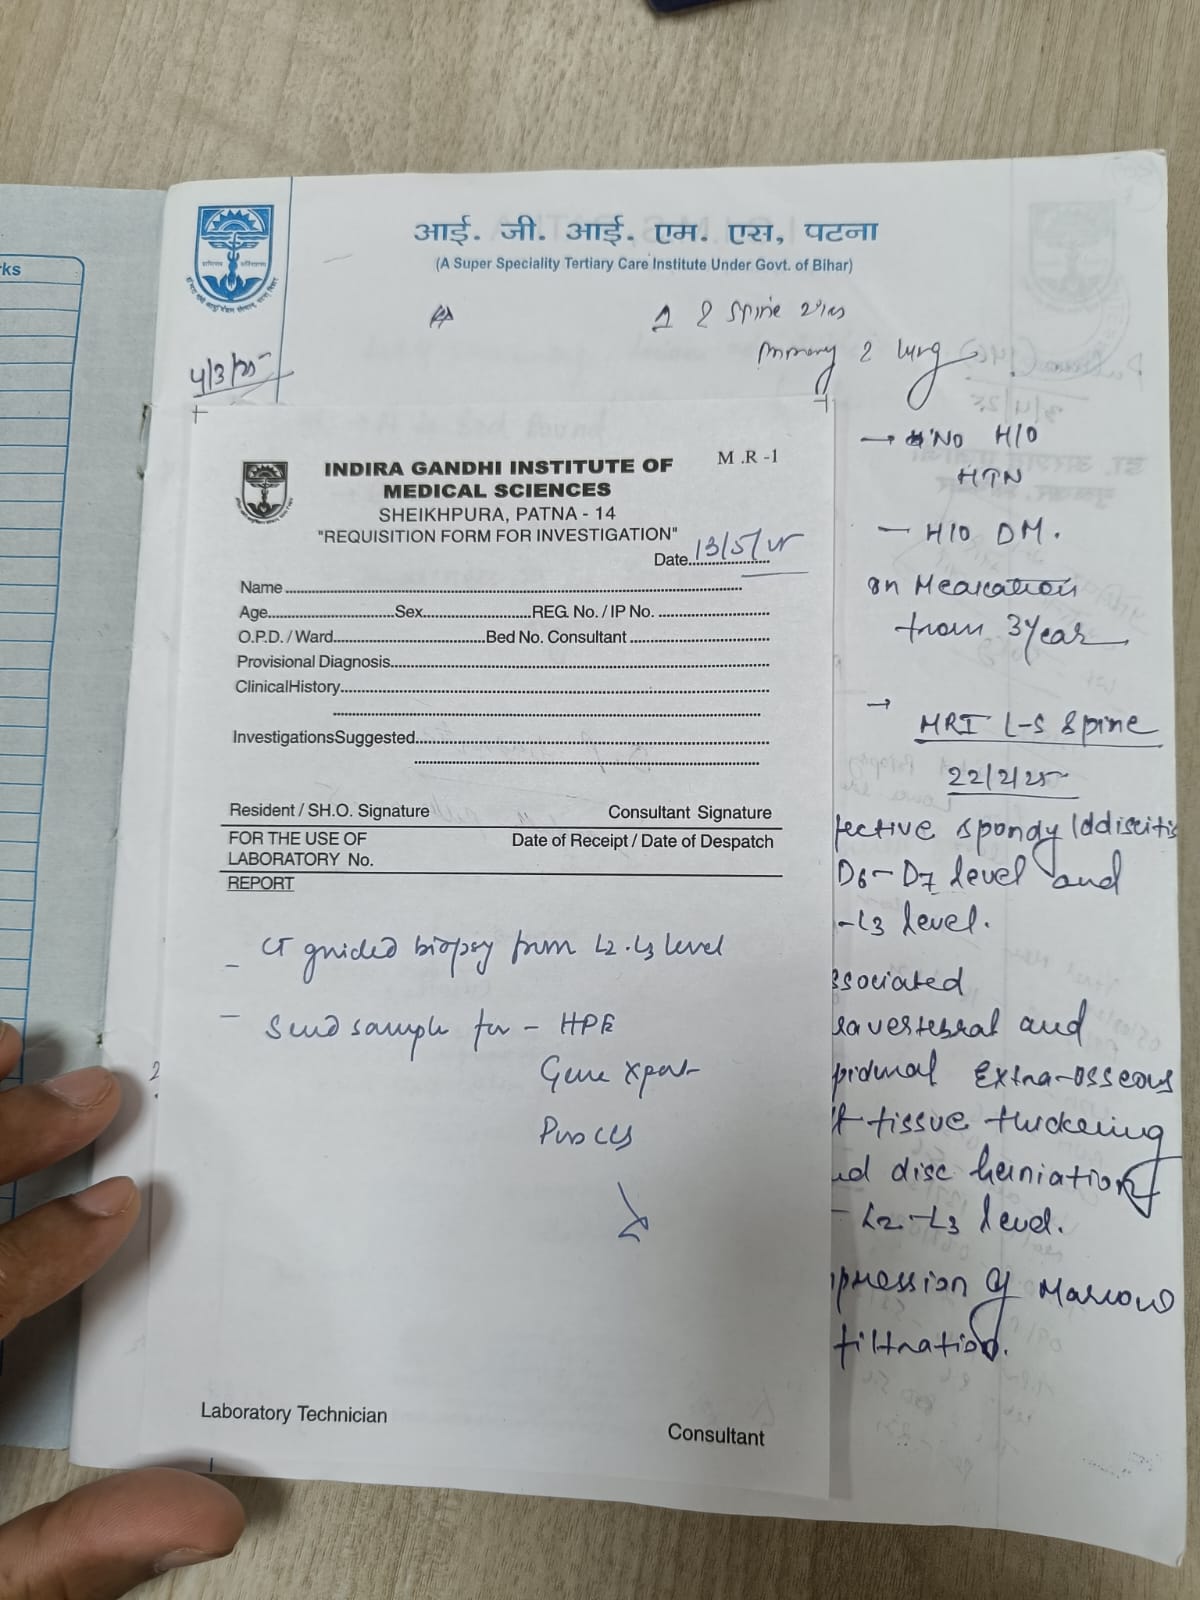 ks
आई. जी. आई. एम. एस, पटना
(A Super Speciality Tertiary Care Institute Under Govt. of Bihar)
Spine
lung
4/3/25
→ No H/O
HTN
- H/O DM.
on Medication
from 3 year
→ MRI L-S Spine
22/2/25
fective spondylodiscitis
D6-D7 level and
-L3 level.
ssociated
ravertebral and
pidural Extra-osseous
ft tissue thickening
nd disc herniation
- L2-L3 level.
pression of Marrow
filtration.
INDIRA GANDHI INSTITUTE OF
MEDICAL SCIENCES
M.R-1
SHEIKHPURA, PATNA - 14
"REQUISITION FORM FOR INVESTIGATION"
Date 13/5/25
Name
Age Sex REG. No. / IP No.
O.P.D. / Ward Bed No. Consultant
Provisional Diagnosis
ClinicalHistory
InvestigationsSuggested
Resident / SH.O. Signature Consultant Signature
FOR THE USE OF Date of Receipt / Date of Despatch
LABORATORY No.
REPORT
- CT guided biopsy from L2-L3 level
- Send sample for - HPE
Gene Xpert
Pus C/S
Laboratory Technician
Consultant